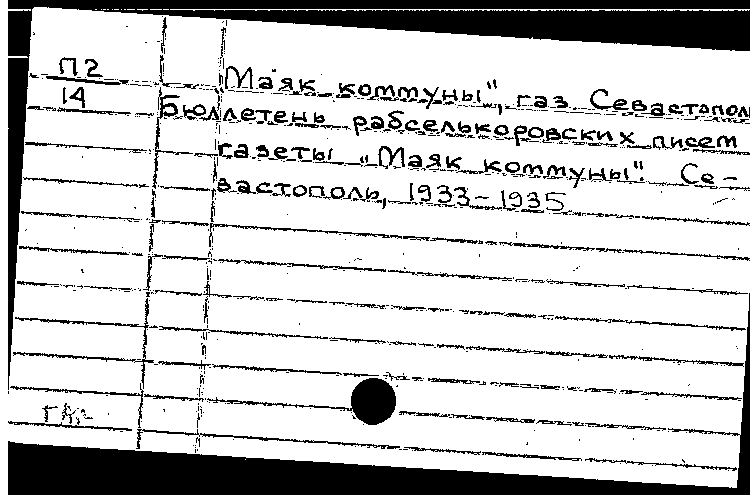 П2
14
"Маяк коммуны", газ. Севастополь
Бюллетень рабселькоровских писем
газеты „Маяк коммуны". Се-
вастополь, 1933-1935